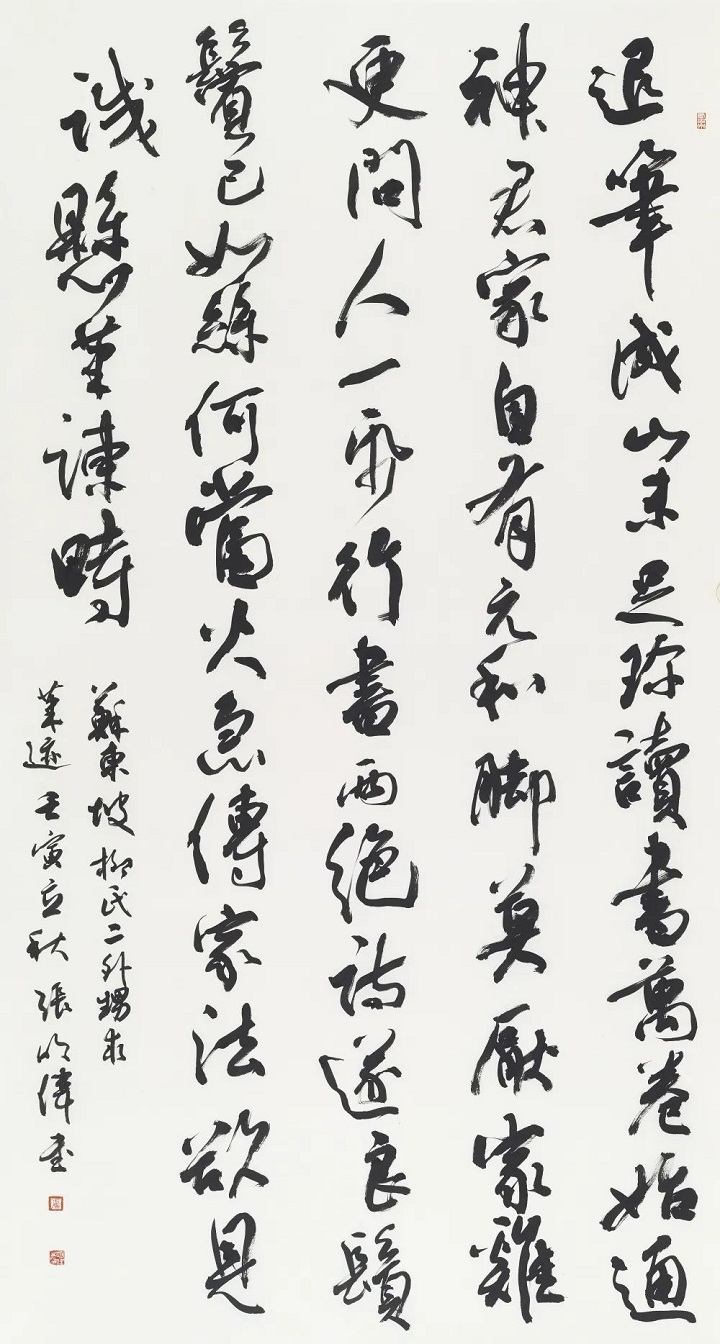 退筆成山未足珍讀書萬卷始通
神君家自有元和脚莫厭家雞
更問人一帋行書兩絶詩遂良鬚
鬢已如絲何當火急傳家法欲見
誠懸筆諫時
蘇東坡柳氏二外甥求
筆迹 壬寅立秋 張偉書